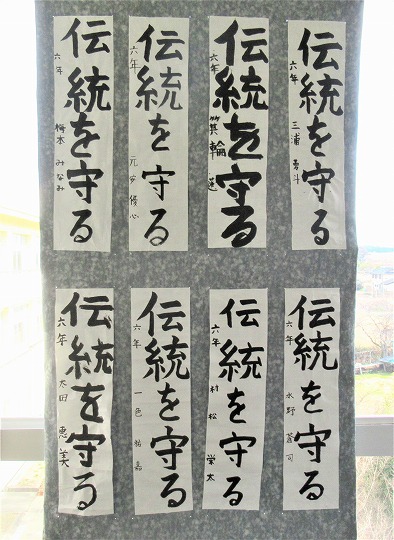 伝統を守る
六年 三浦 勇斗
伝統を守る
六年 箕輪 蓮
伝統を守る
六年 元安 優心
伝統を守る
六年 梅本 みなみ
伝統を守る
六年 水野 蒼司
伝統を守る
六年 村松 栄太
伝統を守る
六年 一色
伝統を守る
六年 太田 恵美